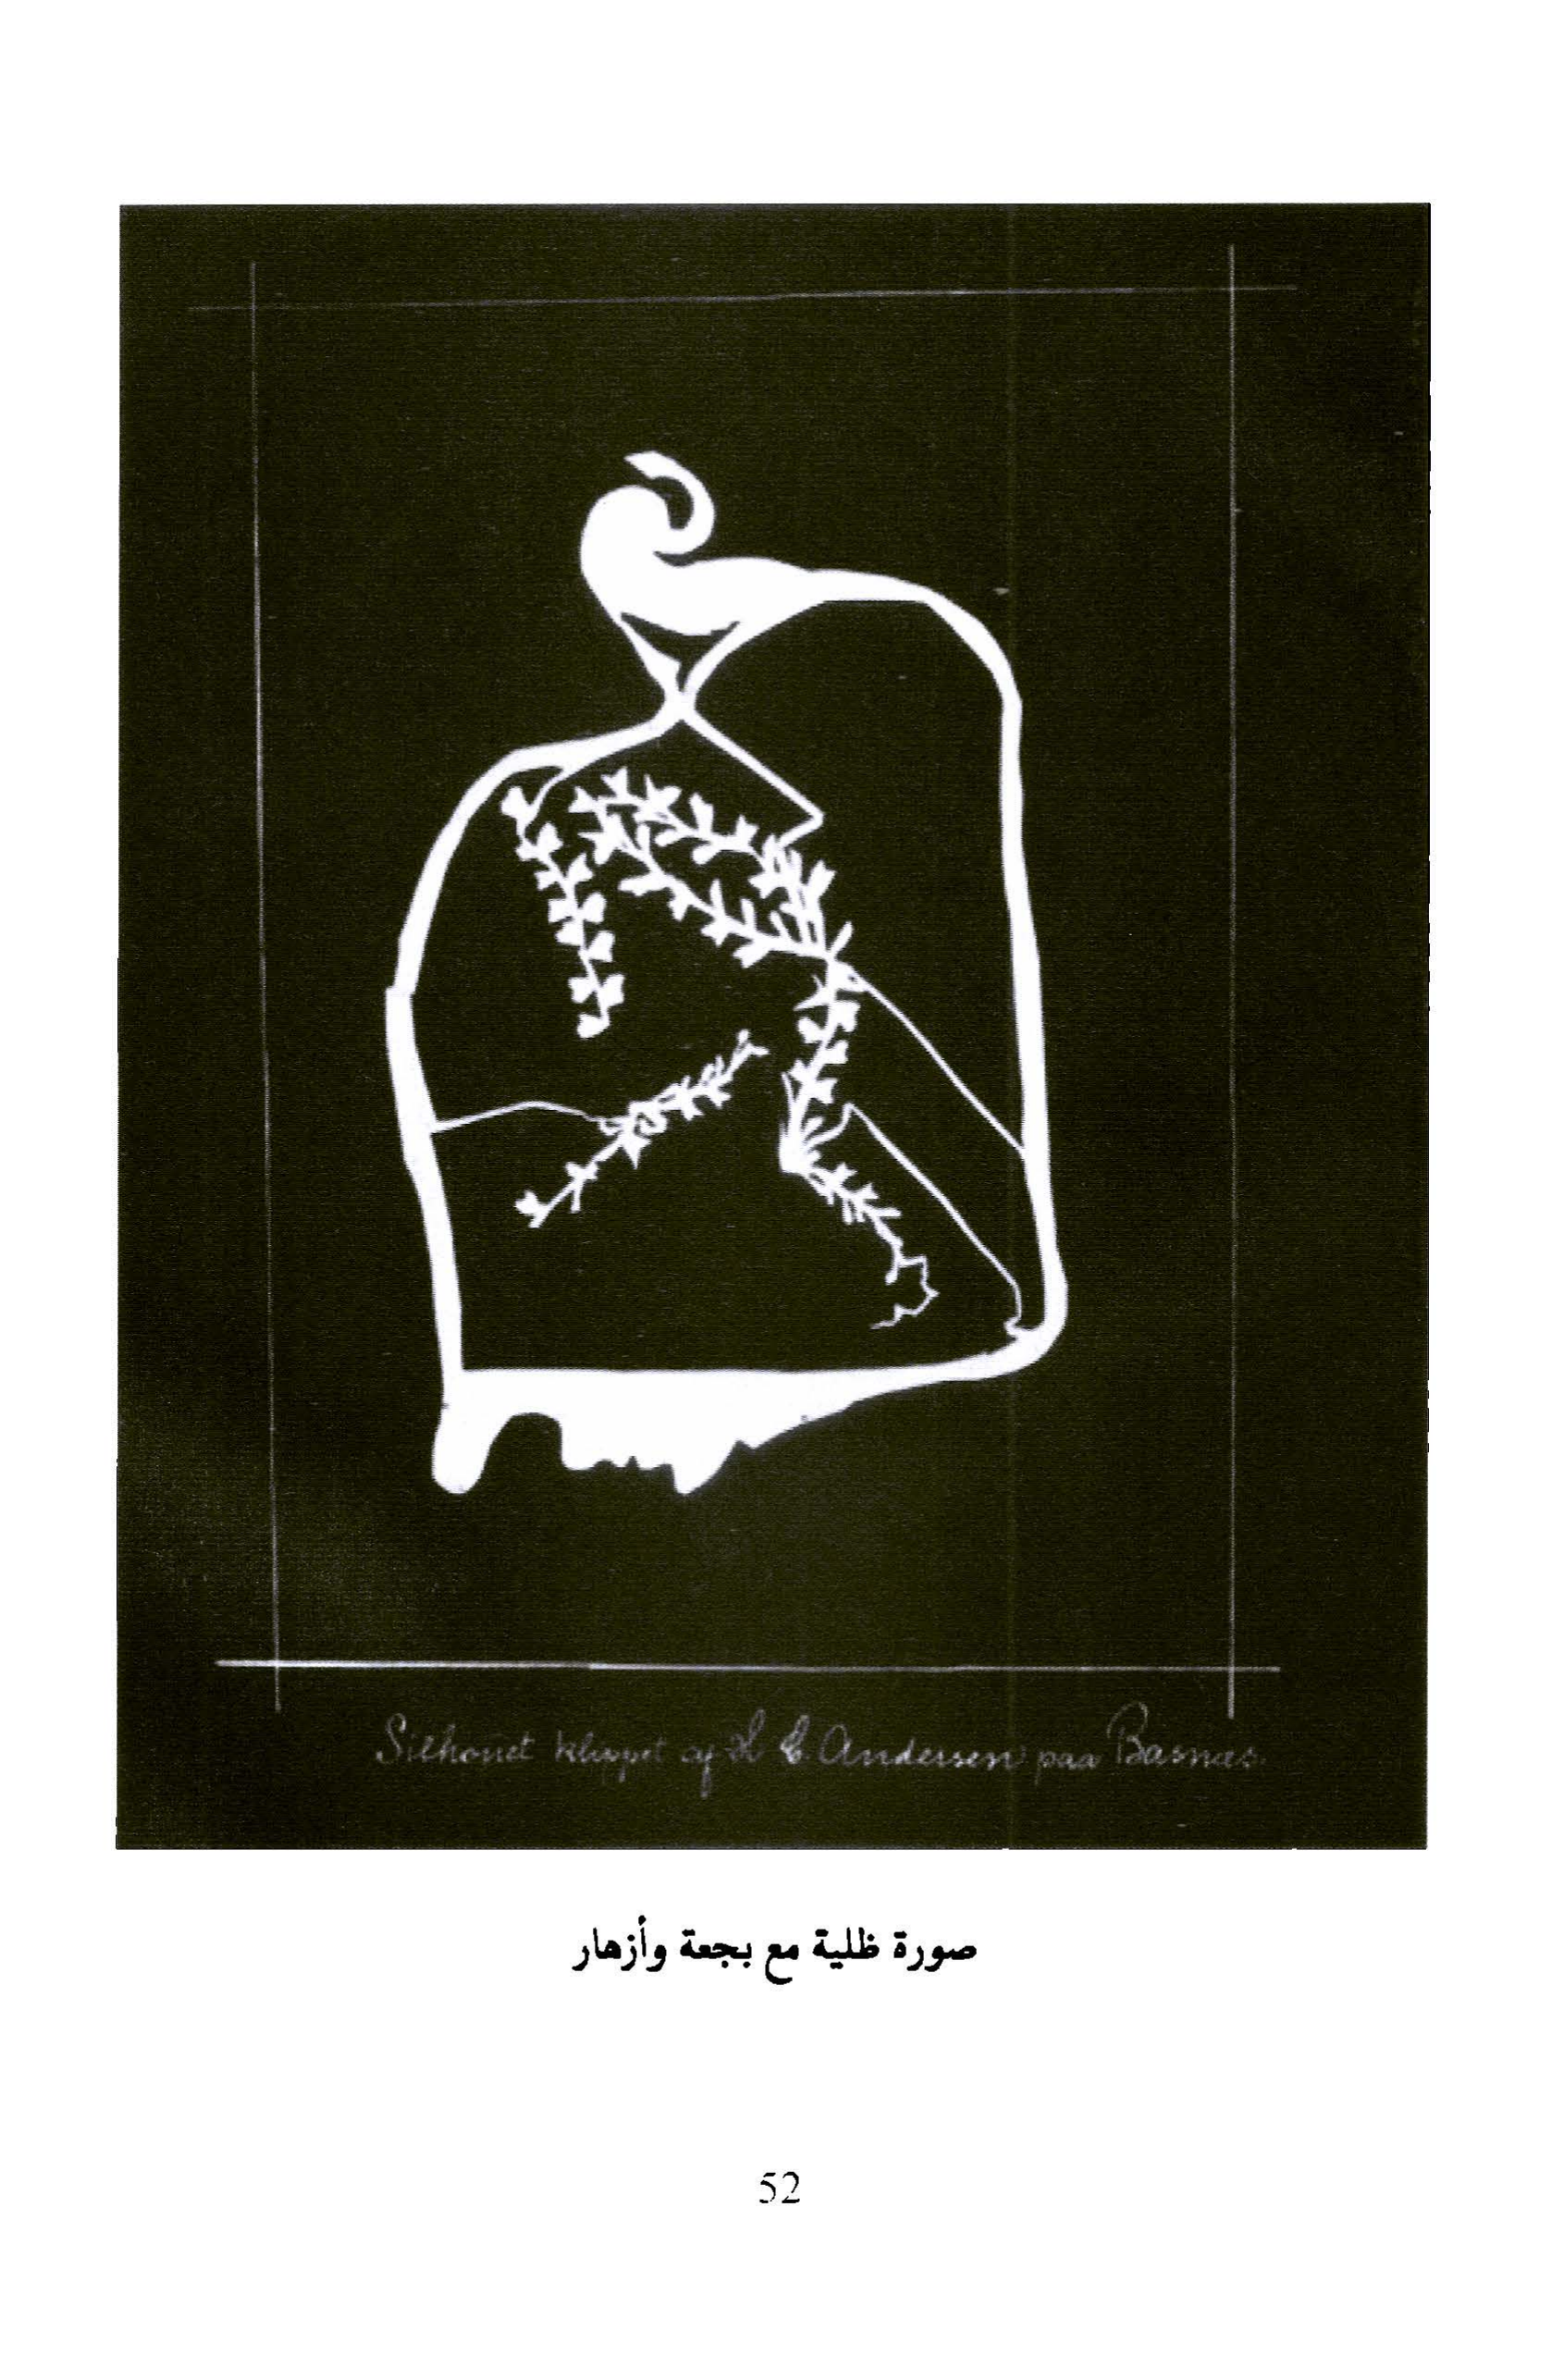 Silhouet klippet af H C Andersen paa Basnæs.
صورة ظلية مع بجعة وأزهار
52